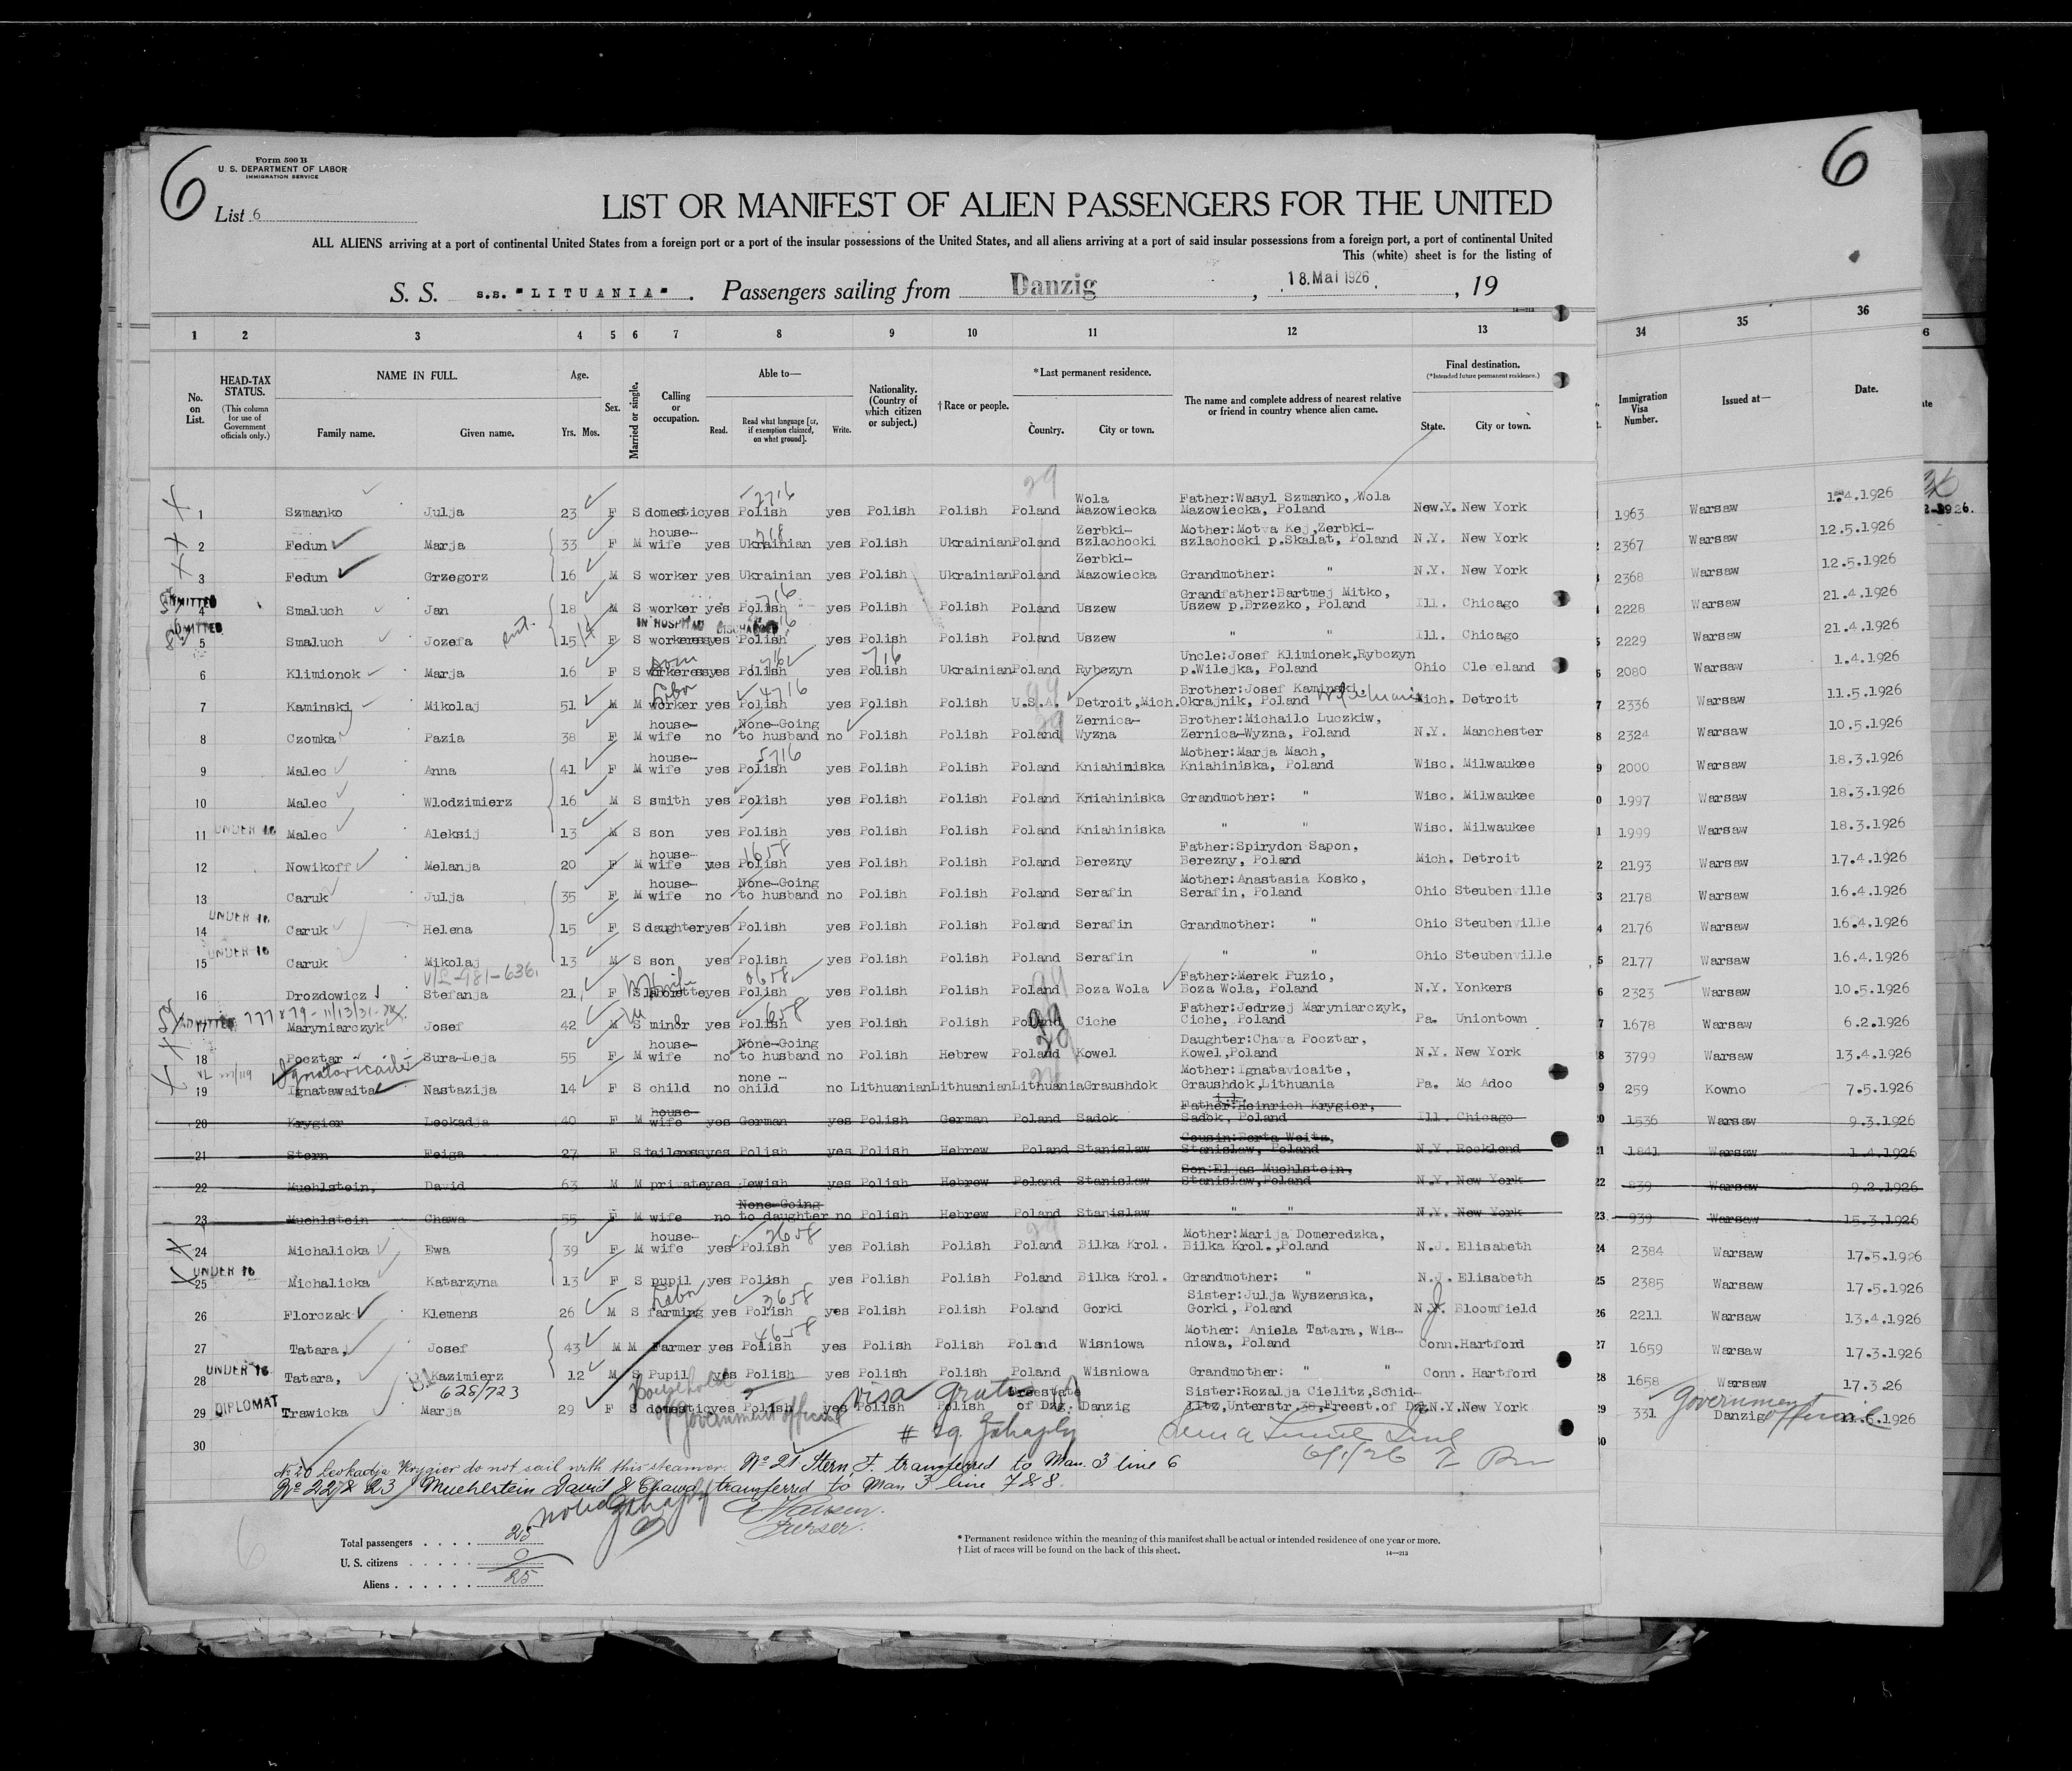 6
Form 500 B
U. S. DEPARTMENT OF LABOR
IMMIGRATION SERVICE
List 6
6
LIST OR MANIFEST OF ALIEN PASSENGERS FOR THE UNITED
ALL ALIENS arriving at a port of continental United States from a foreign port or a port of the insular possessions of the United States, and all aliens arriving at a port of said insular possessions from a foreign port, a port of continental United
This (white) sheet is for the listing of
S. S. s.s. "LITUANIA". Passengers sailing from Danzig, 18. Mai 1926., 19
14—213
1 2 3 4 5 6 7 8 9 10 11 12 13 34 35 36
No. on List. HEAD-TAX STATUS. (This column for use of Government officials only.) NAME IN FULL. Family name. Given name. Age. Yrs. Mos. Sex. Married or single. Calling or occupation. Able to— Read. Read what language [or, if exemption claimed, on what ground]. Write. Nationality. (Country of which citizen or subject.) † Race or people. * Last permanent residence. Country. City or town. The name and complete address of nearest relative or friend in country whence alien came. Final destination. (*Intended future permanent residence.) State. City or town. Immigration Visa Number. Issued at— Date.
1 Szmanko Julja 23 F S domestic yes Polish 2716 yes Polish Polish Poland Wola Mazowiecka Father:Wasyl Szmanko, Wola Mazowiecka, Poland New.Y. New York 1963 Warsaw 1.4.1926
2 Fedun Marja 33 F M house-wife yes Ukrainian yes Polish Ukrainian Poland Zerbki-szlachocki Mother:Motva Kej,Zerbki-szlachocki p.Skalat, Poland N.Y. New York 2367 Warsaw 12.5.1926
3 Fedun Grzegorz 16 M S worker yes Ukrainian yes Polish Ukrainian Poland Zerbki-Mazowiecka Grandmother: " N.Y. New York 2368 Warsaw 12.5.1926
ADMITTED 4 Smaluch Jan 18 M S worker yes Polish yes Polish Polish Poland Uszew Grandfather:Bartmej Mitko, Uszew p.Brzezko, Poland Ill. Chicago 2228 Warsaw 21.4.1926
ADMITTED IN HOSPITAL DISCHARGED
5 Smaluch Jozefa 15 F S workeress yes Polish yes Polish Polish Poland Uszew " " Ill. Chicago 2229 Warsaw 21.4.1926
6 Klimionok Marja 16 F S workeress yes Polish yes Polish Ukrainian Poland Rybczyn Uncle:Josef Klimionek,Rybczyn p.Wilejka, Poland Ohio Cleveland 2080 Warsaw 1.4.1926
7 Kaminski Mikolaj 51 M M worker yes Polish 4716 yes Polish Polish U.S.A. Detroit,Mich. Brother:Josef Kaminski, Okrajnik, Poland Mich. Detroit 2336 Warsaw 11.5.1926
8 Czomka Pazia 38 F M house-wife no None-Going to husband no Polish Polish Poland Zernica-Wyzna Brother:Michailo Luczkiw, Zernica-Wyzna, Poland N.Y. Manchester 2324 Warsaw 10.5.1926
9 Malec Anna 41 F M house-wife yes Polish 5716 yes Polish Polish Poland Kniahiniska Mother:Marja Mach, Kniahiniska, Poland Wisc. Milwaukee 2000 Warsaw 18.3.1926
10 Malec Wlodzimierz 16 M S smith yes Polish yes Polish Polish Poland Kniahiniska Grandmother: " Wisc. Milwaukee 1997 Warsaw 18.3.1926
11 UNDER 16 Malec Aleksij 13 M S son yes Polish yes Polish Polish Poland Kniahiniska " " Wisc. Milwaukee 1999 Warsaw 18.3.1926
12 Nowikoff Melanja 20 F M house-wife yes Polish 1658 yes Polish Polish Poland Berezny Father:Spirydon Sapon, Berezny, Poland Mich. Detroit 2193 Warsaw 17.4.1926
13 Caruk Julja 35 F M house-wife no None-Going to husband no Polish Polish Poland Serafin Mother:Anastasia Kosko, Serafin, Poland Ohio Steubenville 2178 Warsaw 16.4.1926
14 UNDER 16 Caruk Helena 15 F S daughter yes Polish yes Polish Polish Poland Serafin Grandmother: " Ohio Steubenville 2176 Warsaw 16.4.1926
15 UNDER 16 Caruk Mikolaj 13 M S son yes Polish yes Polish Polish Poland Serafin " " Ohio Steubenville 2177 Warsaw 16.4.1926
16 Drozdowicz Stefanja 21 F S yes Polish yes Polish Polish Poland Boza Wola Father:Merek Puzio, Boza Wola, Poland N.Y. Yonkers 2323 Warsaw 10.5.1926
17 ADMITTED Maryniarczyk Josef 42 M S minor yes Polish 658 yes Polish Polish Poland Ciche Father:Jedrzej Maryniarczyk, Ciche, Poland Pa. Uniontown 1678 Warsaw 6.2.1926
18 Pocztar Sura-Leja 55 F M house-wife no None-Going to husband no Polish Hebrew Poland Kowel Daughter:Chava Pocztar, Kowel,Poland N.Y. New York 3799 Warsaw 13.4.1926
Ignatavicaite
19 Ignatawaita Nastazija 14 F S child no none - child no Lithuanian Lithuanian Lithuania Graushdok Mother:Ignatavicaite, Graushdok,Lithuania Pa. Mc Adoo 259 Kowno 7.5.1926
20 Krygier Leokadja 40 F M house-wife yes German yes Polish German Poland Sadok Father:Heinrich Krygier, Sadok, Poland Ill. Chicago 1536 Warsaw 9.3.1926
21 Stern Feiga 27 F S taileress yes Polish yes Polish Hebrew Poland Stanislaw Cousin:Berta Weitz, Stanislaw, Poland N.Y. Rocklend 1841 Warsaw 1.4.1926
22 Muehlstein, David 63 M M private yes Jewish yes Polish Hebrew Poland Stanislaw Son:Eljas Muehlstein, Stanislaw,Poland N.Y. New York 839 Warsaw 9.2.1926
23 Muehlstein Chawa 55 F M wife no None-Going to daughter no Polish Hebrew Poland Stanislaw " " N.Y. New York 939 Warsaw 15.3.1926
24 Michalicka Ewa 39 F M house-wife yes Polish yes Polish Polish Poland Bilka Krol. Mother:Marija Domeredzka, Bilka Krol.,Poland N.J. Elisabeth 2384 Warsaw 17.5.1926
25 UNDER 16 Michalicka Katarzyna 13 F S pupil yes Polish yes Polish Polish Poland Bilka Krol. Grandmother: " N.J. Elisabeth 2385 Warsaw 17.5.1926
26 Florczak Klemens 26 M S farming yes Polish 3658 yes Polish Polish Poland Gorki Sister:Julja Wyszenska, Gorki, Poland N.J. Bloomfield 2211 Warsaw 13.4.1926
27 Tatara, Josef 43 M M Farmer yes Polish 4658 yes Polish Polish Poland Wisniowa Mother: Aniela Tatara, Wis-niowa, Poland Conn. Hartford 1659 Warsaw 17.3.1926
28 UNDER 16 Tatara, Kazimierz 12 M S Pupil yes Polish yes Polish Polish Poland Wisniowa Grandmother: " " Conn. Hartford 1658 Warsaw 17.3.26
628/723 Household of Government official visa gratis Government official
29 DIPLOMAT Trawicka Marja 29 F S domestic yes Polish yes Polish Polish Freestate of Dzg. Danzig Sister:Rozalja Cielitz,Schid-litz,Unterstr.38,Freest.of Dzg. N.Y. New York 331 Danzig 11.6.1926
30
No 20 Leokadja Krygier do not sail with this steamer. No 21 Stern, F. transferred to Man. 3 line 6
No 22 & 23 Muehlstein David & Chawa transferred to Man 3 line 7 & 8.
Purser.
Total passengers 25
U. S. citizens 0
Aliens 25
* Permanent residence within the meaning of this manifest shall be actual or intended residence of one year or more.
† List of races will be found on the back of this sheet.
14—213